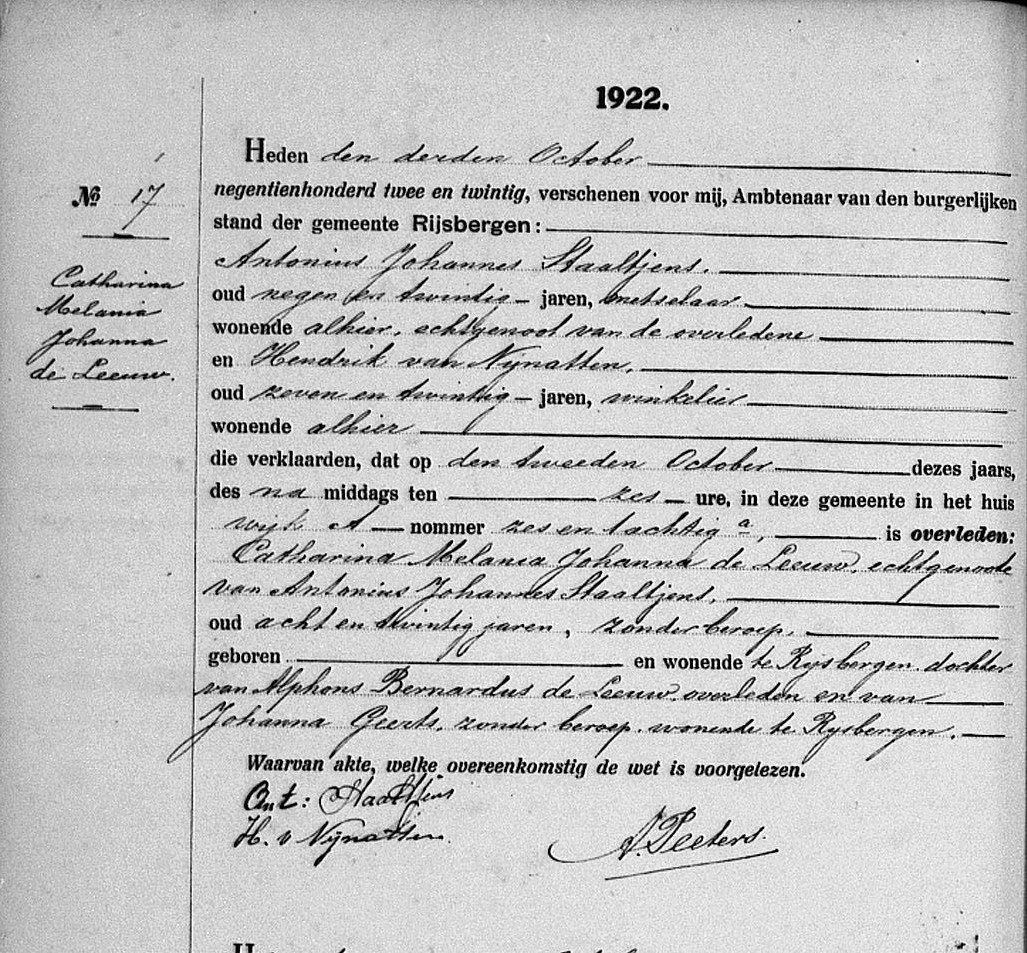 1922.
Heden den derden October
negentienhonderd twee en twintig, verschenen voor mij, Ambtenaar van den burgerlijken
stand der gemeente Rijsbergen:
Nº 17
Catharina
Melania
Johanna
de Leeuw.
Antonius Johannes Staaltjens.
oud negen en twintig jaren, metselaar
wonende alhier, echtgenoot van de overledene
en Hendrik van Nijnatten,
oud zeven en twintig jaren, winkelier
wonende alhier
die verklaarden, dat op den tweeden October dezes jaars,
des na middags ten zes ure, in deze gemeente in het huis
wijk A nommer zes en tachtig a, is overleden:
Catharina Melania Johanna de Leeuw, echtgenoote
van Antonius Johannes Staaltjens,
oud acht en twintig jaren, zonder beroep,
geboren en wonende te Rijsbergen, dochter
van Alphons Bernardus de Leeuw, overleden en van
Johanna Geerts, zonder beroep, wonende te Rijsbergen.
Waarvan akte, welke overeenkomstig de wet is voorgelezen.
Ant: Staaltjens
H. v Nijnatten.
A. Peeters.